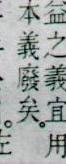 益之義宜用
本義廢矣左